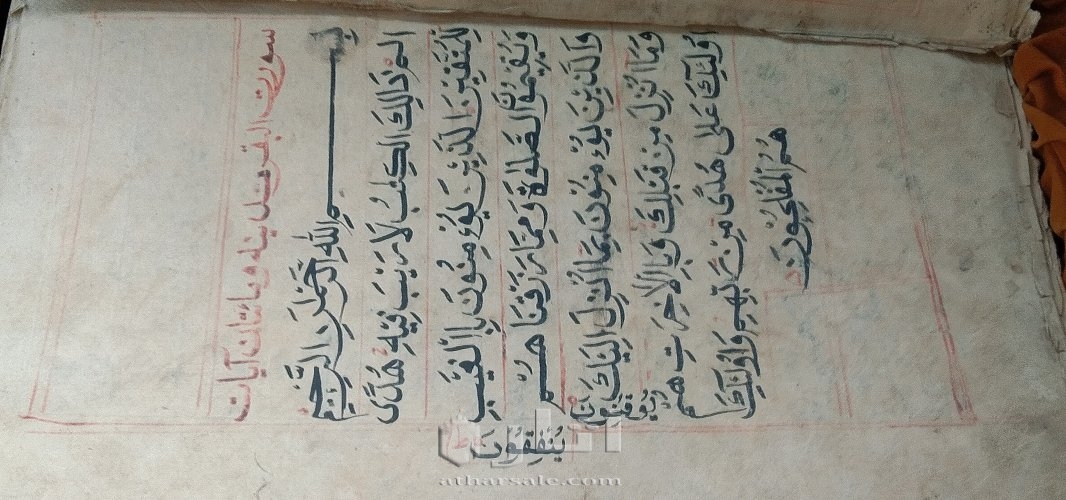 سورت البقر مدينه ومائتان آيات
بِسْمِ اللهِ الرَّحْمٰنِ الرَّحِيْمِ
الم ذَلِكَ الْكِتٰبُ لَا رَيْبَ فِيْهِ هُدًى
لِّلْمُتَّقِيْنَ الَّذِيْنَ يُؤْمِنُوْنَ بِاالْغَيْبِ
وَيُقِيْمُوْنَ الصَّلٰوةَ وَمِمَّا رَزَقْنَا هُمْ
يُنْفِقُوْنَ
وَالَّذِيْنَ يُؤْمِنُوْنَ بِمَا اُنْزِلَ اِلَيْكَ
وَمَا اُنْزِلَ مِنْ قَبْلِكَ وَبِالْاٰخِرَتِ هم
اُولٰئِكَ عَلٰى هُدًى مِّنْ رَّبِّهِمْ وَاُولٰئِكَ
هُمُ الْمُفْلِحُوْنَ
atharsale.com